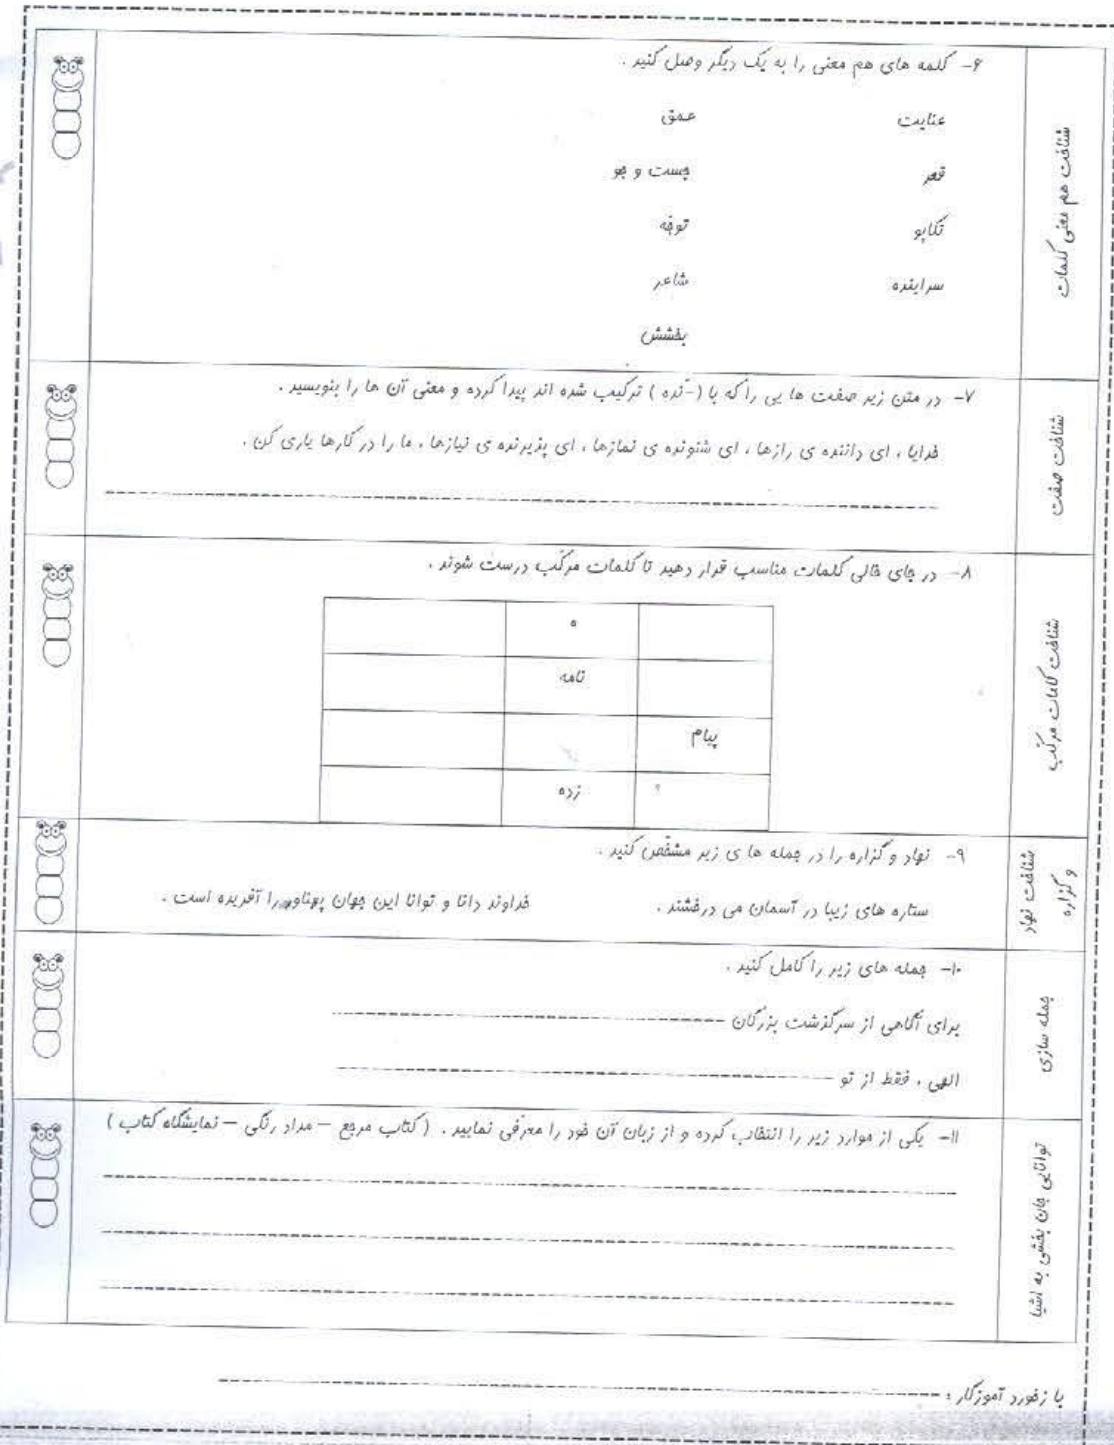 شناخت هم معنی کلمات
۶- کلمه های هم معنی را به یک دیگر وصل کنید .
عنایت عمق
قعر جست و جو
تکاپو توفه
سراینده شاعر
بخشش
شناخت صفت
۷- در متن زیر صفت ها یی را که با (-َنده ) ترکیب شده اند پیدا کرده و معنی آن ها را بنویسید .
خدایا ، ای داننده ی رازها ، ای شنونده ی نمازها ، ای پذیرنده ی نیازها ، ما را در کارها یاری کن .
شناخت کلمات مرکّب
۸- در جای خالی کلمات مناسب قرار دهید تا کلمات مرکّب درست شوند .
ه
نامه
پیام
زده
شناخت نهاد
و گزاره
۹- نهاد و گزاره را در جمله ها ی زیر مشخّص کنید .
ستاره های زیبا در آسمان می درخشند . خداوند دانا و توانا این جهان پهناور را آفریده است .
جمله سازی
۱۰- جمله های زیر را کامل کنید .
برای آگاهی از سرگذشت بزرگان
الهی ، فقط از تو
توانایی جان بخشی به اشیا
۱۱- یکی از موارد زیر را انتخاب کرده و از زبان آن خود را معرفی نمایید . ( کتاب مرجع – مداد رنگی – نمایشگاه کتاب )
با زخورد آموزگار :